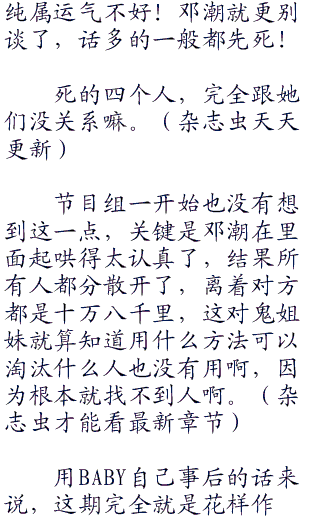 纯属运气不好！邓潮就更别
谈了，话多的一般都先死！
死的四个人，完全跟她
们没关系嘛。（杂志虫天天
更新）
节目组一开始也没有想
到这一点，关键是邓潮在里
面起哄得太认真了，结果所
有人都分散开了，离着对方
都是十万八千里，这对鬼姐
妹就算知道用什么方法可以
淘汰什么人也没有用啊，因
为根本就找不到人啊。（杂
志虫才能看最新章节）
用BABY自己事后的话来
说，这期完全就是花样作